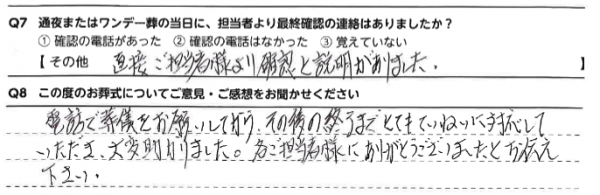 Q7 通夜またはワンデー葬の当日に、担当者より最終確認の連絡はありましたか？
① 確認の電話があった ② 確認の電話はなかった ③ 覚えていない
【 その他 直接ご担当者様より確認と説明がありました。 】
Q8 この度のお葬式についてご意見・ご感想をお聞かせください
電話で葬儀をお願いしてから、その後の終るまでとてもていねいに対応して
いただき、大変助かりました。各ご担当者様にありがとうございましたとお伝え
下さい。